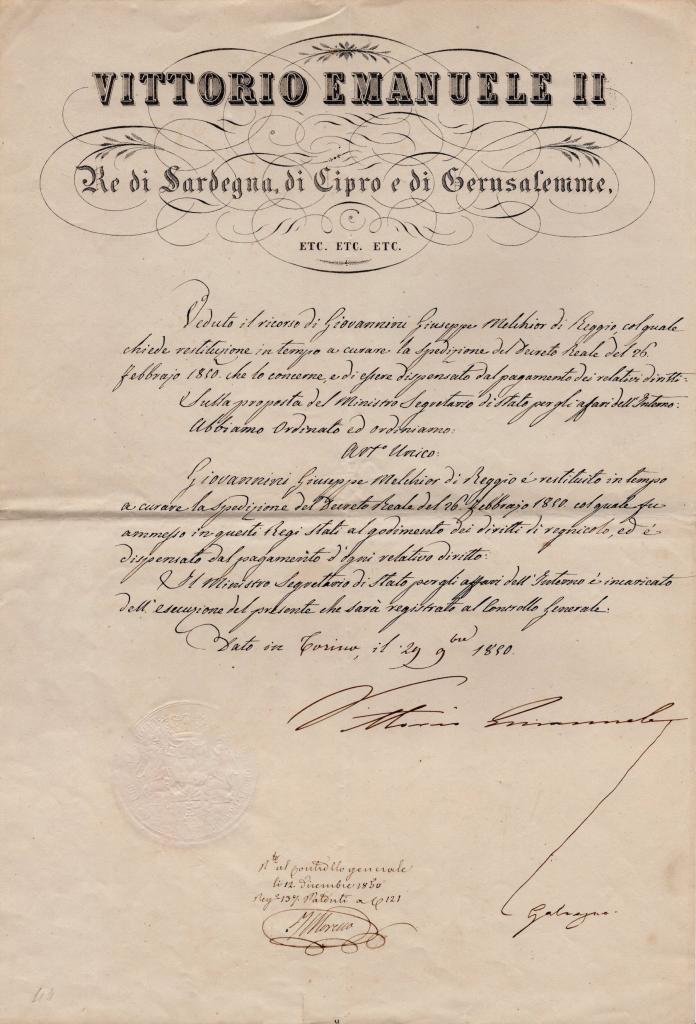 VITTORIO EMANUELE II
Re di Sardegna, di Cipro e di Gerusalemme,
ETC. ETC. ETC.
Veduto il ricorso di Giovannini Giuseppe Melchior di Reggio, col quale
chiede restituzione in tempo a curare la spedizione del Decreto Reale del 26.
Febbrajo 1850. che lo concerne, e di essere dispensato dal pagamento dei relativi diritti:
Sulla proposta del Ministro Segretario di stato per gli affari dell'Interno:
Abbiamo Ordinato ed ordiniamo:
Art.o Unico:
Giovannini Giuseppe Melchior di Reggio é restituito in tempo
a curare la spedizione del Decreto Reale del 26. Febbrajo 1850. col quale fu
ammesso in questi Regi Stati al godimento dei diritti di regnicolo, ed é
dispensato dal pagamento d'ogni relativo diritto:
Il Ministro Segretario di Stato per gli affari dell'Interno é incaricato
dell'esecuzione del presente che sarà registrato al Controllo Generale:
Dato in Torino, il 29 9bre 1850.
Vittorio Emanuele
R.to al controllo generale
li 12. Dicembre 1850
Reg.o 137. Patenti a C 121
Moreno
Galvagno.